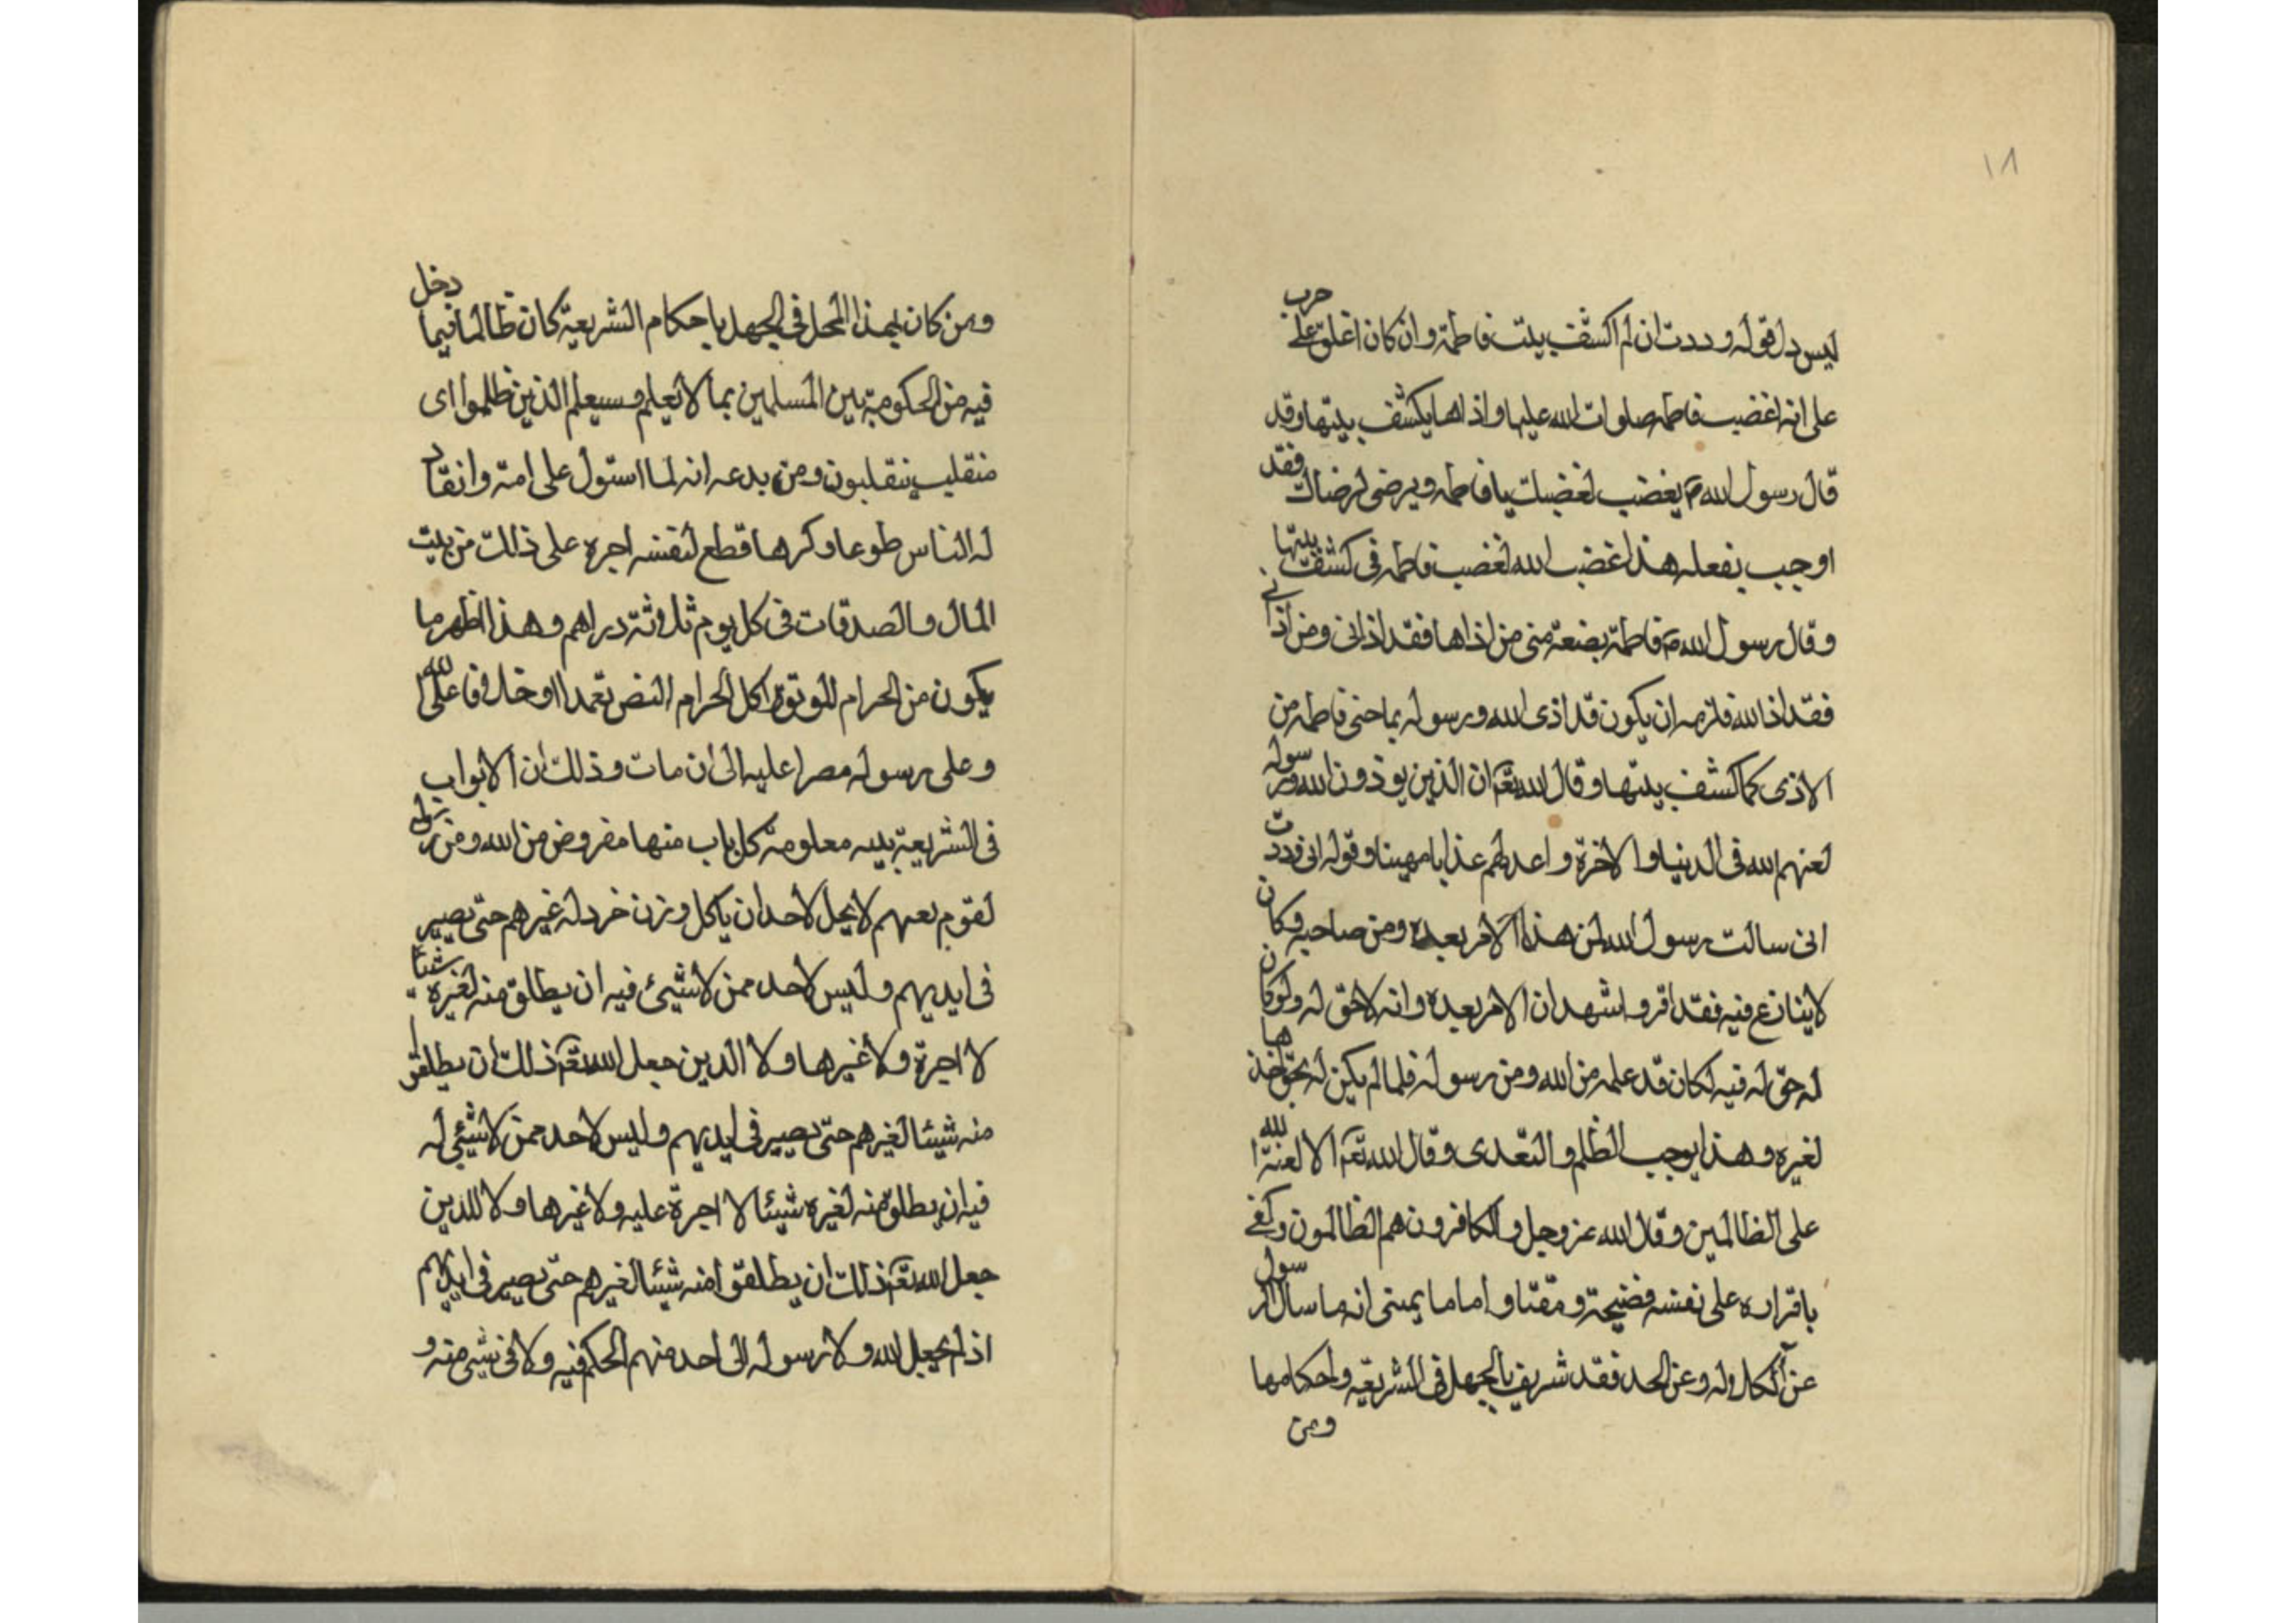 ١٨
ليس دل قوله وددت ان لم اكشف بيت فاطمة وان كان اغلق على حرب
على انه اغضب فاطمه صلوات الله عليها واذاها بكشف بيتها وقد
قال رسول الله ص يغضب لغضبك يا فاطمه ويرضى لرضاك فقد
اوجب بفعله هذا غضب الله لغضب فاطمه فى كشف بيتها
وقال رسول الله ص فاطمة بضعة منى من اذاها فقد اذانى ومن اذانى
فقد اذا لله فلزمه ان يكون قد اذى الله ورسوله بما حنى فاطمه من
الاذى كما كشف بيتها وقال الله تعم ان الذين يوذون الله ورسوله
لعنهم الله فى الدنيا والاخرة واعد لهم عذابا مهينا وقوله انى وددت
انى سالت رسول الله لمن هذا الامر بعده ومن صاحبه فكان
لا ينازع فيه فقد اقر واشهد ان الامر بعده وانه لا حق له ولو كان
له حق له فيه لكان قد علمه من الله ومن رسوله فلما لم يكن له بحق اخذها
لغيره وهذا يوجب الظلم والتعدى وقال الله تعم الا لعنة الله
على الظالمين وقال الله عز وجل والكافرون هم الظالمون وكفى
باقراره على نفسه فضيحة ومقتا واما ما يمنى انه ما سال الرسول
عن الكلاله وعن الجد فقد شريف بالجهل فى الشريعة واحكامها
ومن
ومن كان بهذا المحل فى الجهل باحكام الشريعة كان ظالما فيما دخل
فيه من الحكومة بين المسلمين بما لا يعلم وسيعلم الذين ظلموا اى
منقلب ينقلبون ومن بدعه انه لما استول على امة وانقاد
له الناس طوعا وكرها قطع لنفسه اجره على ذلك من بيت
المال والصدقات فى كل يوم ثلوثة دراهم وهذا اظهر ما
يكون من الحرام اكل الحرام النص تعمدا او خلافا على الله
وعلى رسوله مصرا عليه الى ان مات وذلك ان الابواب
فى الشريعة بينه معلومة كل باب منها مفروض من الله ومن رسوله
لقوم بعينهم لا يحل لاحد ان ياكل وزن خردله غيرهم حتى يصير
فى ايديهم وليس لاحد ممن لا شيئ فيه ان يطلق منه لغيره شيئا
لا اجرة ولا غيرها ولا الذين جعل الله تعم ذلك ان يطلقوا
منه شيئا لغيرهم حتى يصير فى ايديهم وليس لاحد ممن لا شيئ له
فيه ان يطلق منه لغيره شيئا لا اجرة عليه ولا غيرها ولا للذين
جعل الله تعم ذلك ان يطلقوا منه شيئا لغيرهم حتى يصير فى ايديهم
اذ لم يجعل الله ولا رسوله الى احد منهم الحكم فيه ولا فى شئ منه و